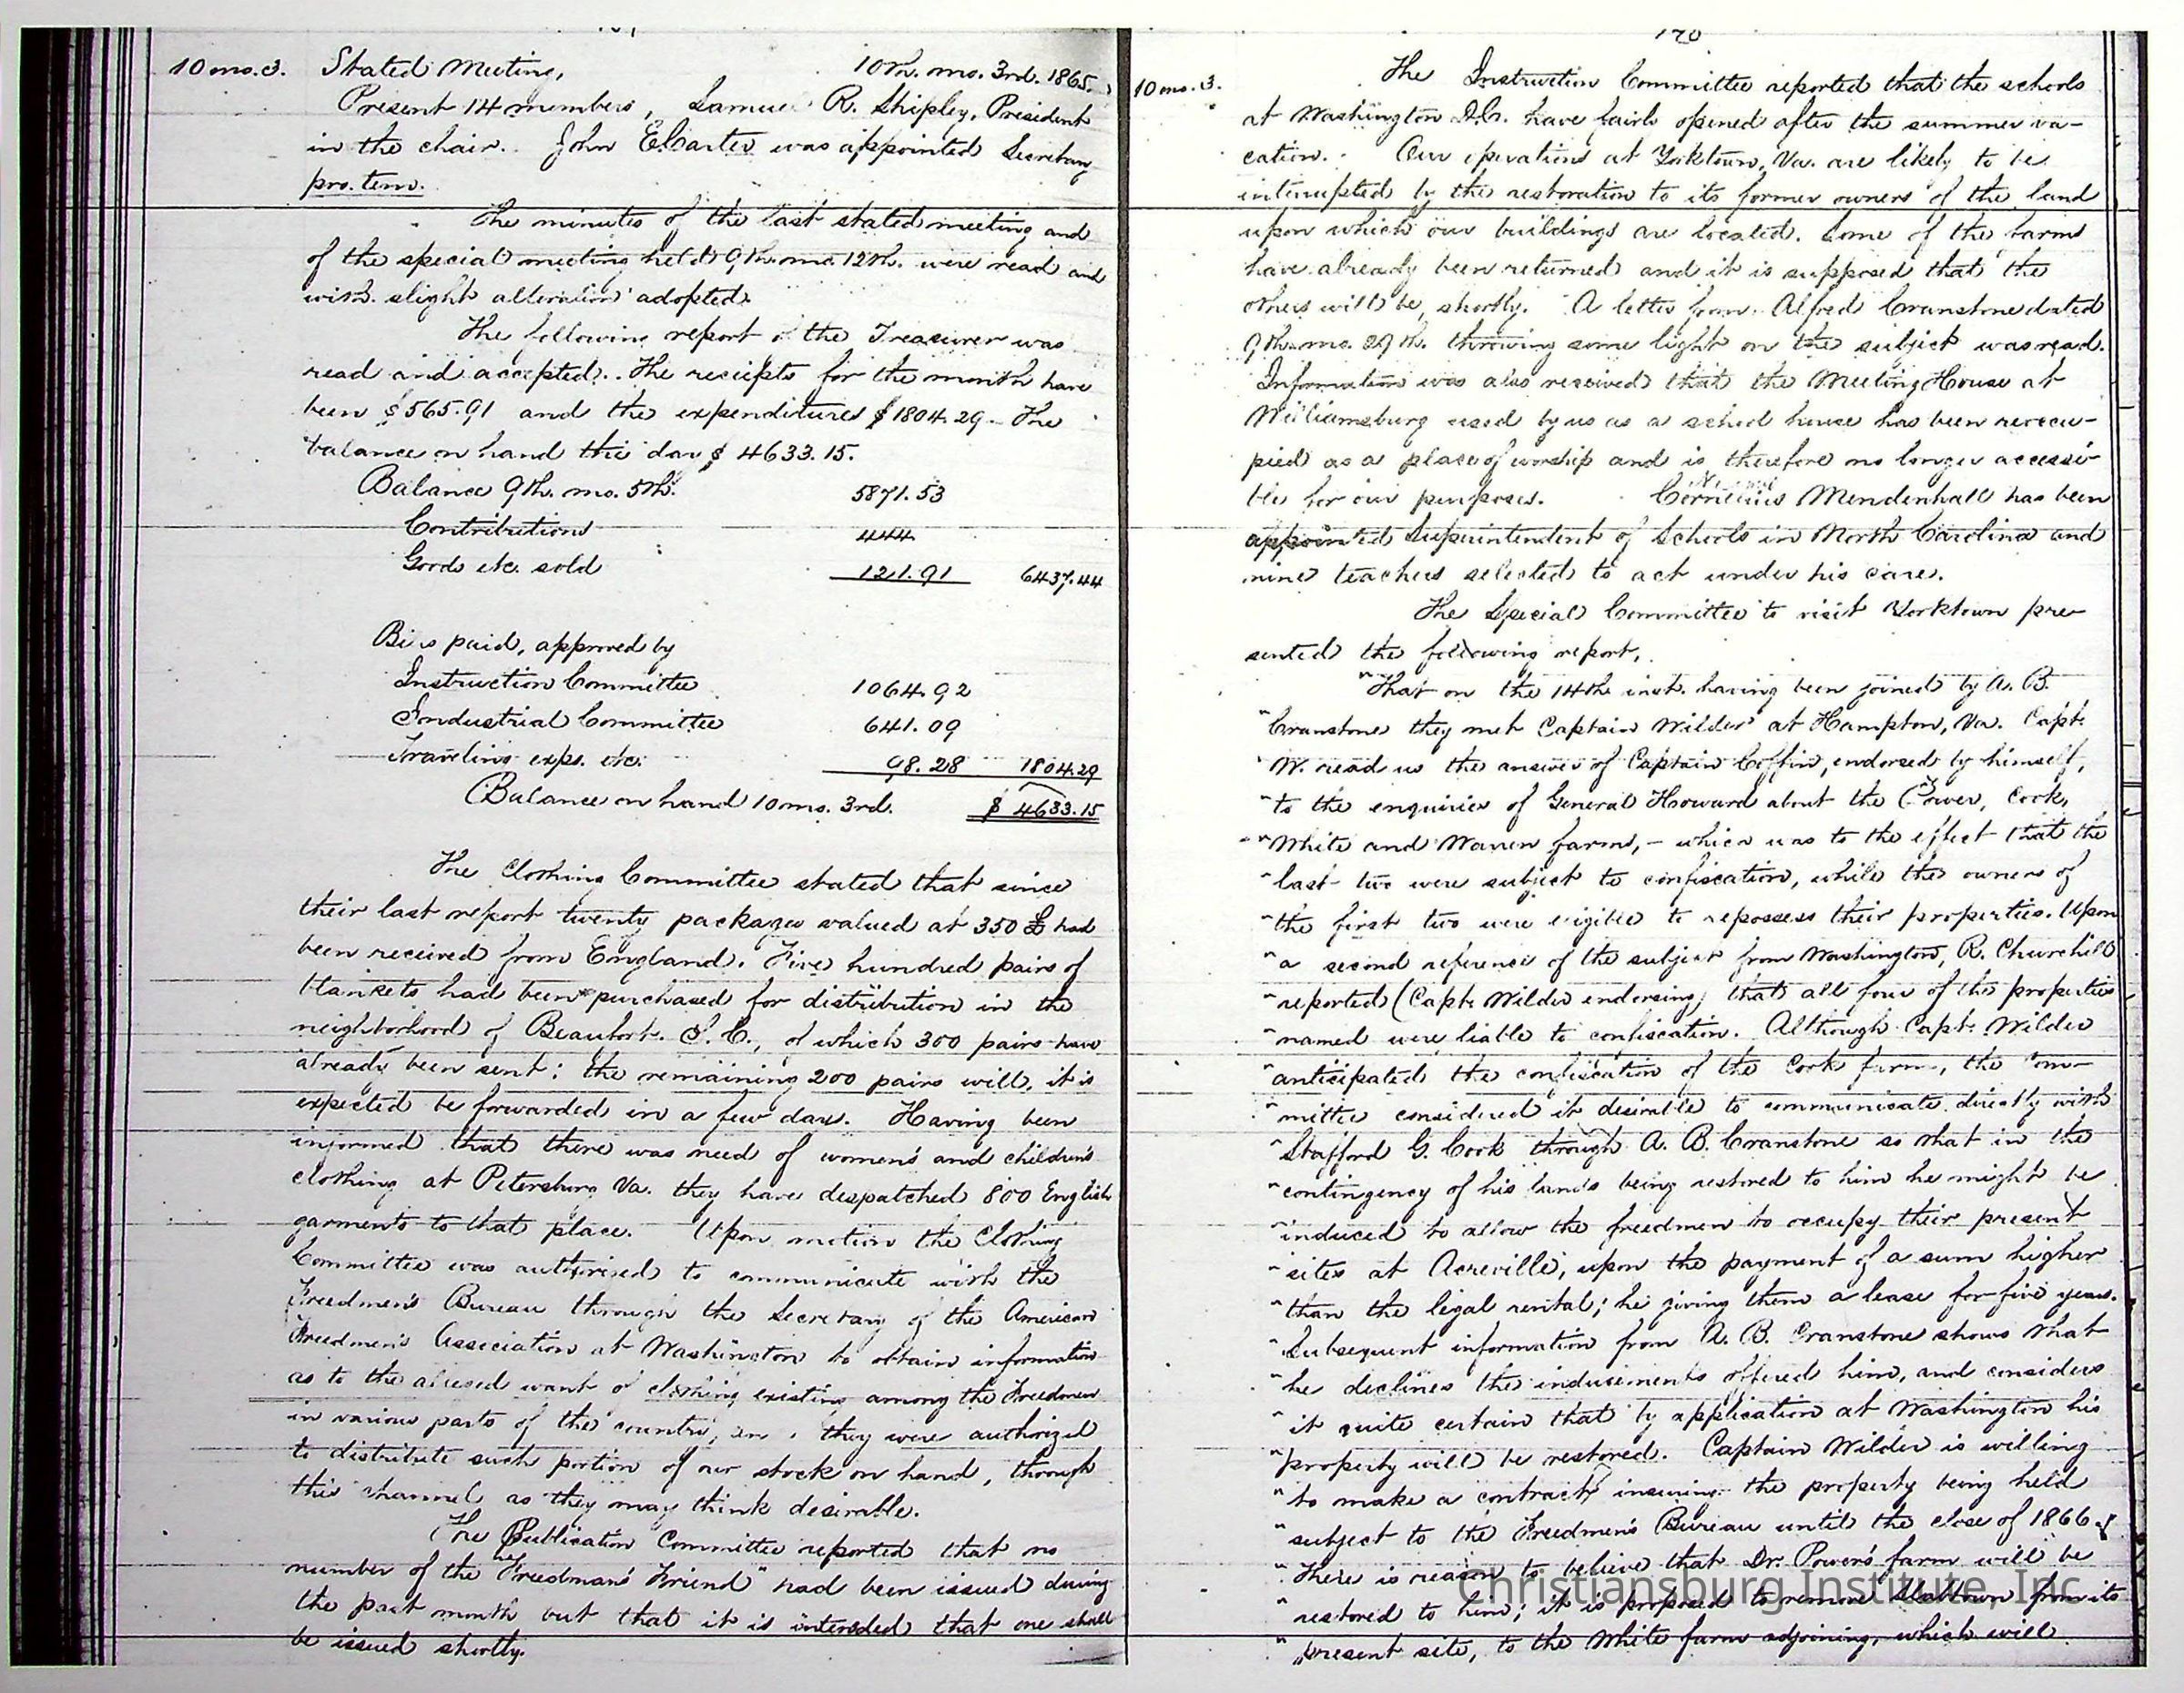 10 mo. 3. Stated Meeting, 10th. mo. 3rd. 1865.
Present 14 members, Samuel R. Shipley, President
in the chair. John E. Carter was appointed Secretary
pro. tem.
The minutes of the last stated meeting and
of the special meeting held 9th. mo. 12th. were read and
with slight alteration adopted.
The following report of the Treasurer was
read and accepted. The receipts for the month have
been $565.91 and the expenditures $1804.29 - The
balance on hand this day $ 4633.15.
Balance 9th. mo. 5th. 5871.53
Contributions 444
Goods etc. sold 121.91 6437.44
Bills paid, approved by
Instruction Committee 1064.92
Industrial Committee 641.09
Traveling exps. etc. 98.28 1804.29
Balance on hand 10 mo. 3rd. $ 4633.15
The Clothing Committee stated that since
their last report twenty packages valued at 350 £ had
been received from England. Five hundred pairs of
blankets had been purchased for distribution in the
neighborhood of Beaufort. S. C., of which 300 pairs have
already been sent; the remaining 200 pairs will, it is
expected be forwarded in a few days. Having been
informed that there was need of women's and children's
clothing at Petersburg Va. they have despatched 800 English
garments to that place. Upon motion the Clothing
Committee was authorised to communicate with the
Freedmen's Bureau through the Secretary of the American
Freedmen's Association at Washington to obtain information
as to the alleged want of clothing existing among the Freedmen
in various parts of the country, and they were authorized
to distribute such portion of our stock on hand, through
this channel as they may think desirable.
The Publication Committee reported that no
number of the "Freedman's Friend" had been issued during
the past month but that it is intended that one shall
be issued shortly.
170
10 mo. 3. The Instruction Committee reported that the schools
at Washington D.C. have fairly opened after the summer va-
cation. Our operations at Yorktown, Va. are likely to be
interrupted by the restoration to its former owners of the land
upon which our buildings are located. Some of the farms
have already been returned and it is supposed that the
others will be, shortly. A letter from Alfred Cranstone dated
9th. mo. 29th. throwing some light on the subject was read.
Information was also received that the Meeting House at
Williamsburg used by us as a school house has been reoccu-
pied as a place of worship and is therefore no longer accessi-
ble for our purposes. Cornelius Mendenhall has been
appointed Superintendent of Schools in North Carolina and
nine teachers selected to act under his care.
The Special Committee to visit Yorktown pre-
sented the following report,
"That on the 14th inst. having been joined by A. B.
"Cranstone they met Captain Wilder at Hampton, Va. Capt.
"W. read us the answer of Captain Coffin, endorsed by himself,
"to the enquiries of General Howard about the Power, Cook,
"White and Warren farms, - which was to the effect that the
"last two were subject to confiscation, while the owners of
"the first two were eligible to repossess their properties. Upon
"a second reference of the subject from Washington, R. Churchill
"reported (Capt. Wilder endorsing) that all four of the properties
"named were liable to confiscation. Although Capt. Wilder
"anticipated the confiscation of the Cook farm, the Com-
"mittee considered it desirable to communicate directly with
"Stafford G. Cook through A. B. Cranstone so that in the
"contingency of his lands being restored to him he might be
"induced to allow the freedmen to occupy their present
"sites at Acreville, upon the payment of a sum higher
"than the legal rental; he giving them a lease for five years.
"Subsequent information from A. B. Cranstone shows that
"he declines the inducements offered him, and considers
"it quite certain that by application at Washington his
"property will be restored. Captain Wilder is willing
"to make a contract insuring the property being held
"subject to the Freedmen's Bureau until the close of 1866.
"There is reason to believe that Dr. Power's farm will be
"restored to him; it is proposed to remove Slabtown from its
"present site, to the White farm adjoining, which will
Christiansburg Institute, Inc